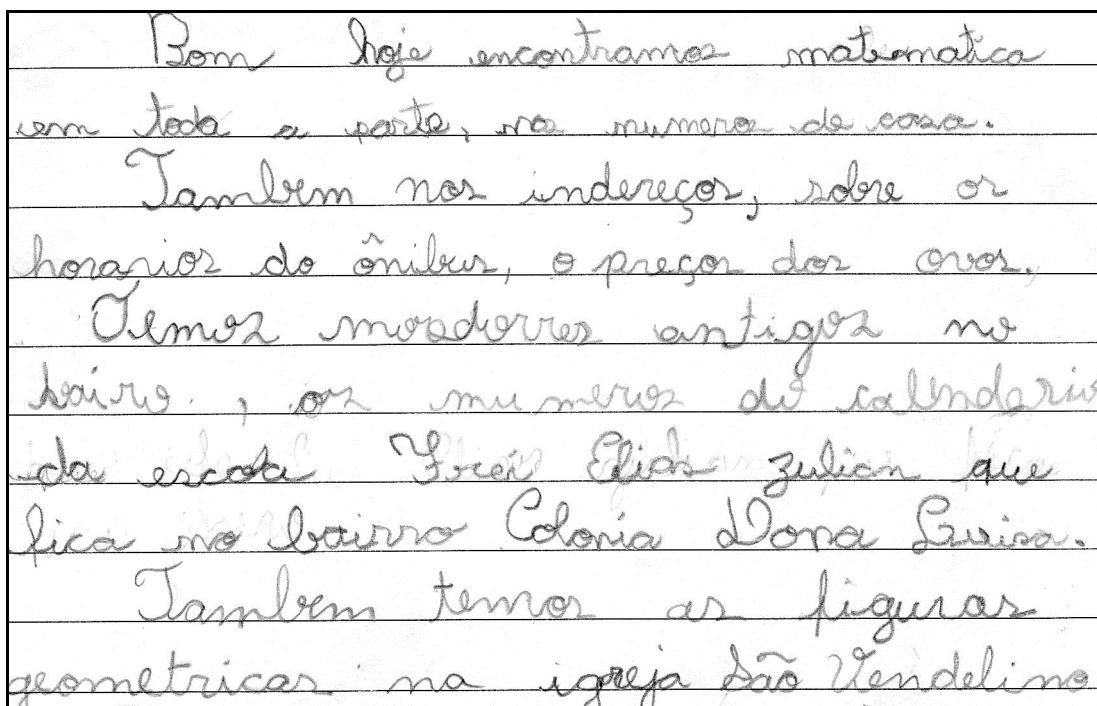 Bom hoje encontramos matematica
em toda a parte, nos numeros de casa.
Tambem nos indereços, sobre os
horarios do ônibus, o preços dos ovos.
Temos moadorres antigos no
bairo, os numeros do calendario
da escola Frei Elias Zulian que
fica no bairro Colonia Dona Luisa.
Tambem temos as figuras
geometricas na igreja São Vendelino